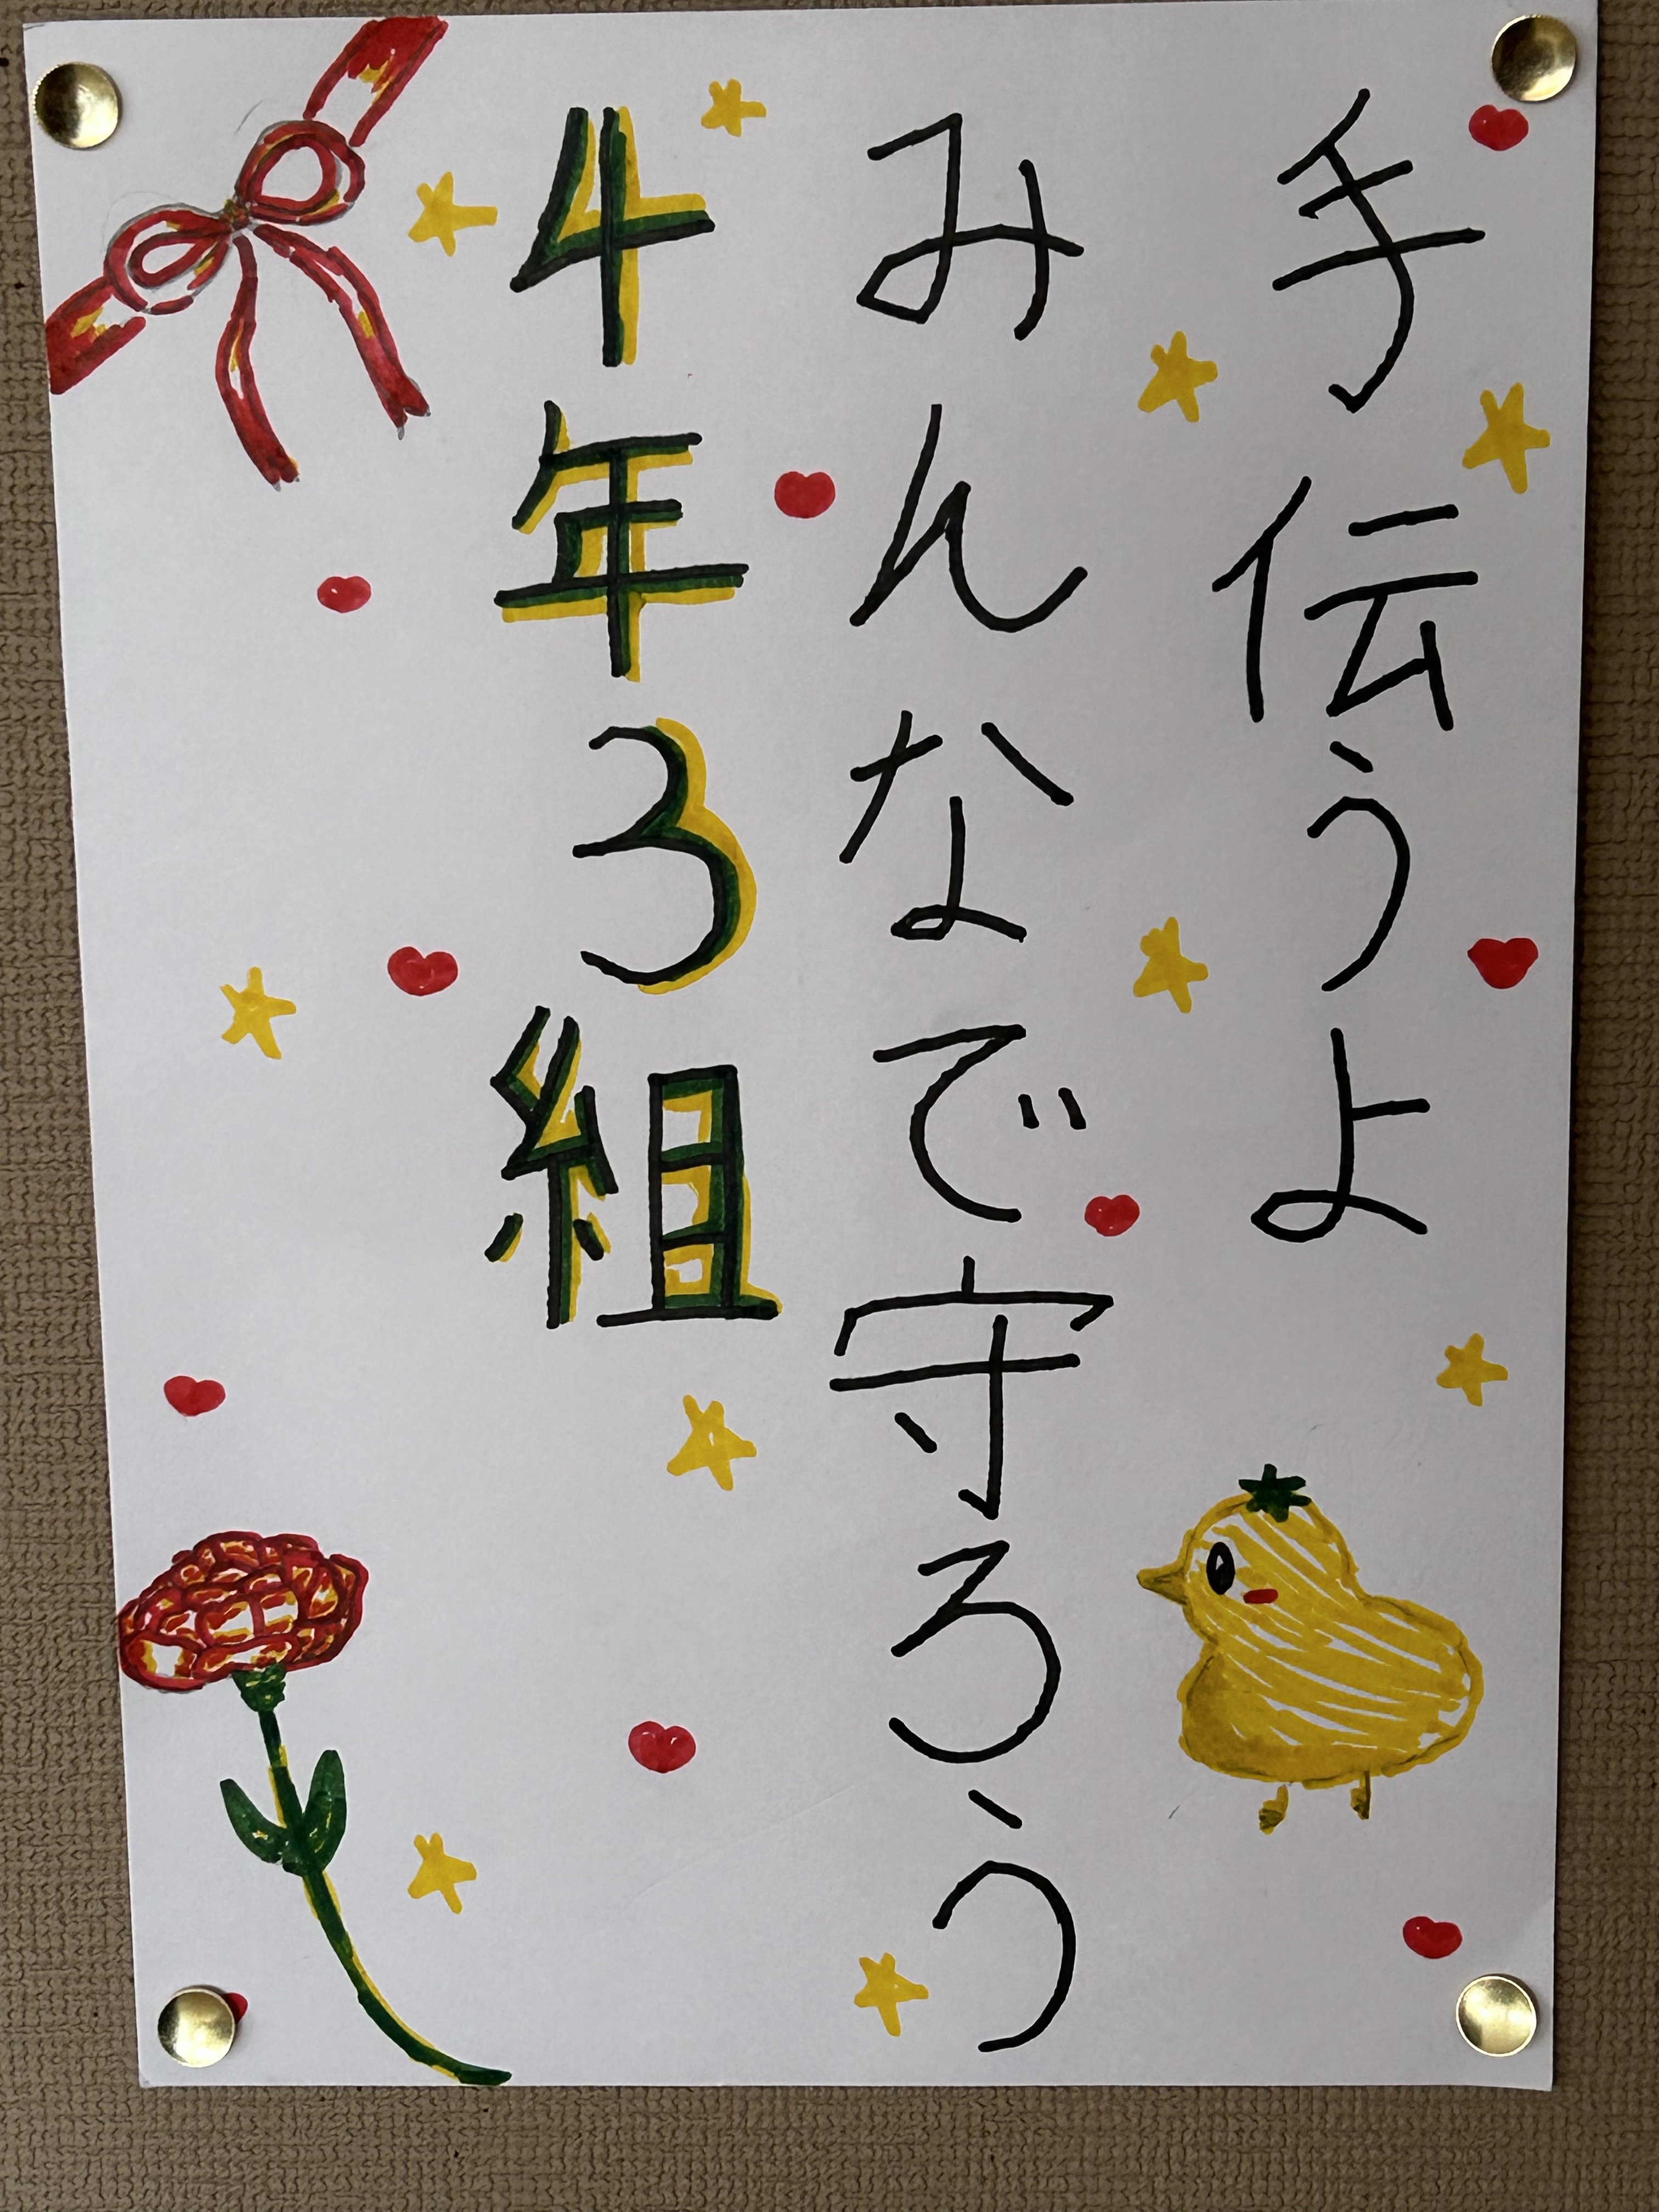 手伝うよ
みんなで守ろう
4年3組